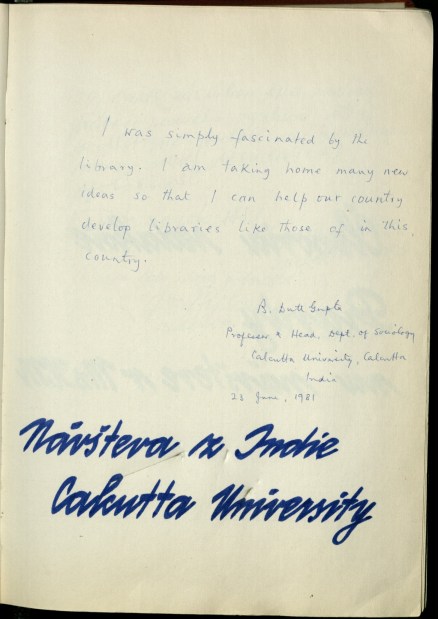 I was simply fascinated by the
library. I am taking home many new
ideas so that I can help our country
develop libraries like those of in this
country.
B. Dutt Gupta
Professor & Head, Dept. of Sociology
Calcutta University, Calcutta
India
23 June, 1981
Návšteva z Indie
Calcutta University